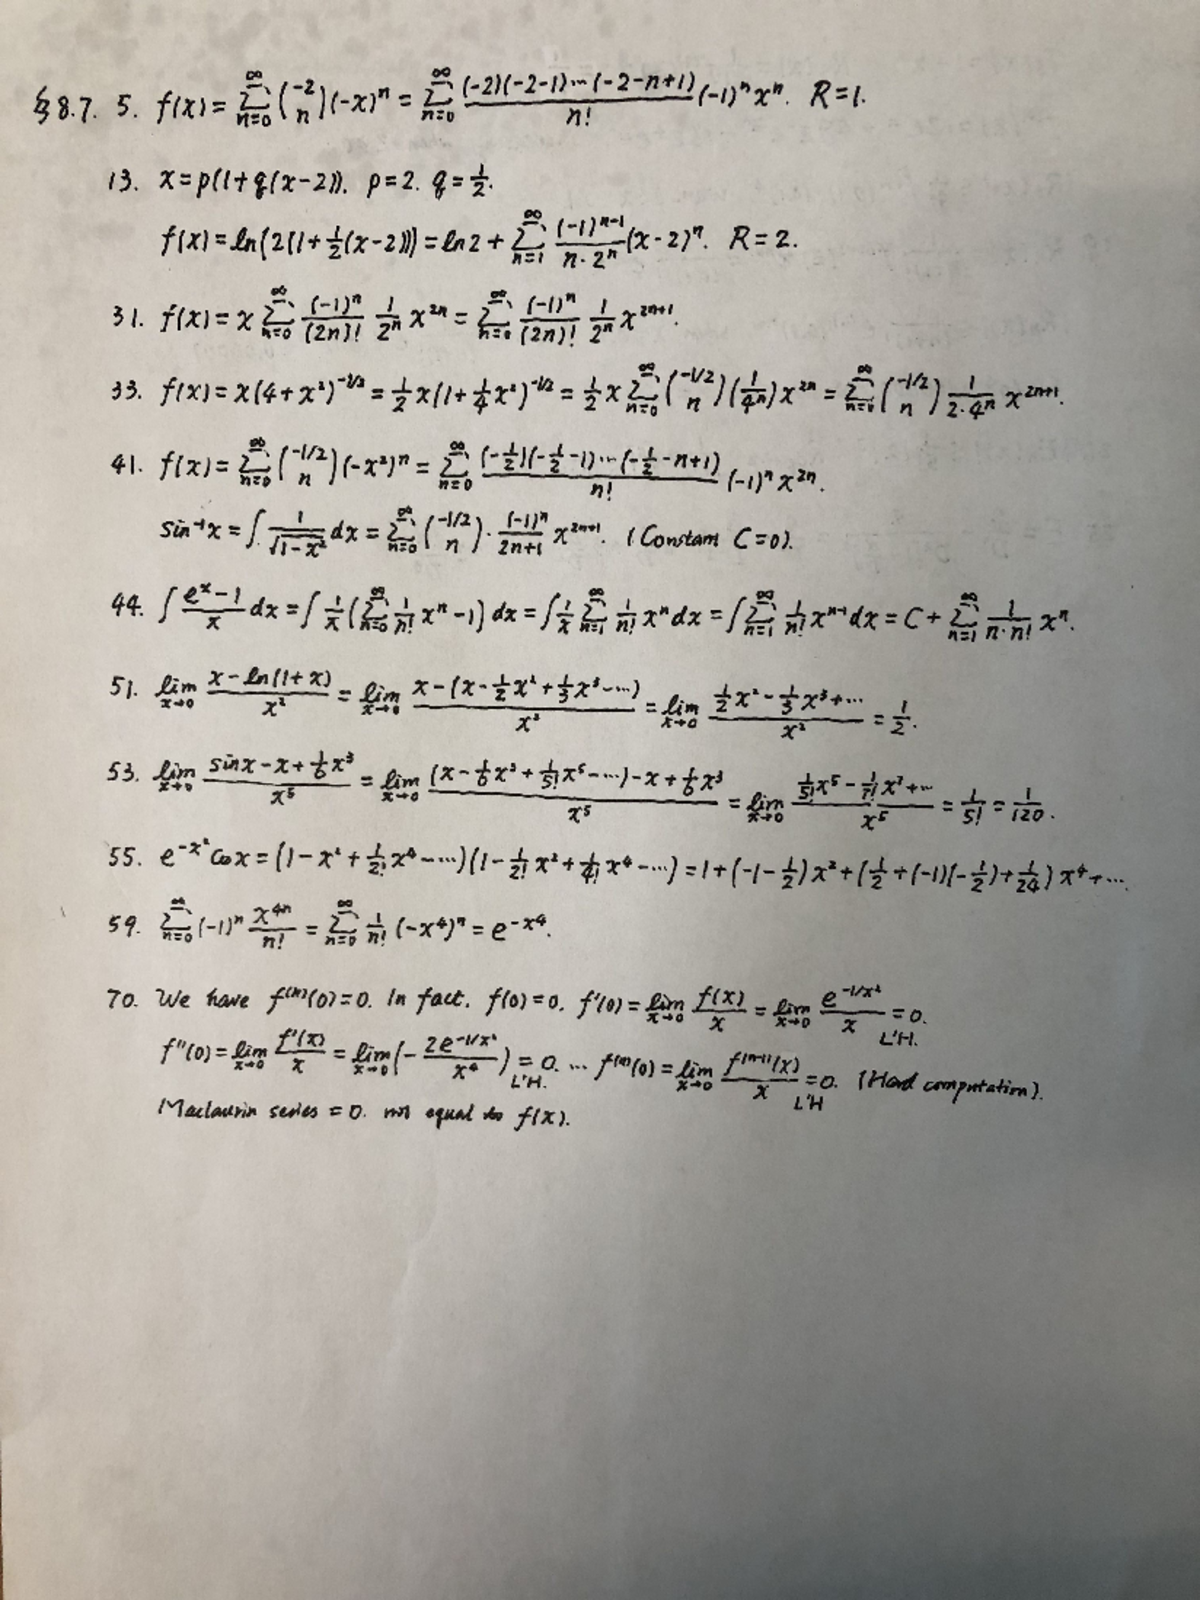 §8.7. 5. f(x) = ∑_{n=0}^{∞} (-2 choose n) (-x)^n = ∑_{n=0}^{∞} \frac{(-2)(-2-1)⋯(-2-n+1)}{n!} (-1)^n x^n. R=1.
13. x = p(1+q(x-2)). p=2. q=\frac{1}{2}.
f(x) = ln(2(1+\frac{1}{2}(x-2))) = ln2 + ∑_{n=1}^{∞} \frac{(-1)^{n-1}}{n·2^n} (x-2)^n. R=2.
31. f(x) = x ∑_{n=0}^{∞} \frac{(-1)^n}{(2n)!} \frac{1}{2^n} x^{2n} = ∑_{n=0}^{∞} \frac{(-1)^n}{(2n)!} \frac{1}{2^n} x^{2n+1}.
33. f(x) = x(4+x²)^{-1/2} = \frac{1}{2}x(1+\frac{1}{4}x²)^{-1/2} = \frac{1}{2}x ∑_{n=0}^{∞} (-1/2 choose n) (\frac{1}{4^n}) x^{2n} = ∑_{n=0}^{∞} (-1/2 choose n) \frac{1}{2·4^n} x^{2n+1}.
41. f(x) = ∑_{n=0}^{∞} (-1/2 choose n) (-x²)^n = ∑_{n=0}^{∞} \frac{(-\frac{1}{2})(-\frac{1}{2}-1)⋯(-\frac{1}{2}-n+1)}{n!} (-1)^n x^{2n}.
sin^{-1}x = ∫ \frac{1}{\sqrt{1-x²}} dx = ∑_{n=0}^{∞} (-1/2 choose n) · \frac{(-1)^n}{2n+1} x^{2n+1}. (Constant C=0).
44. ∫ \frac{e^x-1}{x} dx = ∫ \frac{1}{x} (∑_{n=0}^{∞} \frac{1}{n!} x^n - 1) dx = ∫ \frac{1}{x} ∑_{n=1}^{∞} \frac{1}{n!} x^n dx = ∫ ∑_{n=1}^{∞} \frac{1}{n!} x^{n-1} dx = C + ∑_{n=1}^{∞} \frac{1}{n·n!} x^n.
51. lim_{x→0} \frac{x-ln(1+x)}{x²} = lim_{x→0} \frac{x-(x-\frac{1}{2}x²+\frac{1}{3}x³-⋯)}{x²} = lim_{x→0} \frac{\frac{1}{2}x²-\frac{1}{3}x³+⋯}{x²} = \frac{1}{2}.
53. lim_{x→0} \frac{sinx-x+\frac{1}{6}x³}{x⁵} = lim_{x→0} \frac{(x-\frac{1}{6}x³+\frac{1}{5!}x⁵-⋯)-x+\frac{1}{6}x³}{x⁵} = lim_{x→0} \frac{\frac{1}{5!}x⁵-\frac{1}{7!}x⁷+⋯}{x⁵} = \frac{1}{5!} = \frac{1}{120}.
55. e^{-x²} cosx = (1-x²+\frac{1}{2!}x⁴-⋯)(1-\frac{1}{2!}x²+\frac{1}{4!}x⁴-⋯) = 1+(-1-\frac{1}{2})x²+(\frac{1}{2}+(-1)(-\frac{1}{2})+\frac{1}{24})x⁴+⋯.
59. ∑_{n=0}^{∞} (-1)^n \frac{x^{4n}}{n!} = ∑_{n=0}^{∞} \frac{1}{n!} (-x⁴)^n = e^{-x⁴}.
70. We have f^{(n)}(0)=0. In fact, f(0)=0, f'(0) = lim_{x→0} \frac{f(x)}{x} = lim_{x→0} \frac{e^{-1/x²}}{x} =_{L'H.} 0.
f''(0) = lim_{x→0} \frac{f'(x)}{x} = lim_{x→0} (-\frac{2e^{-1/x²}}{x⁴}) =_{L'H.} 0. ⋯ f^{(n)}(0) = lim_{x→0} \frac{f^{(n-1)}(x)}{x} =_{L'H} 0. (Hard computation).
Maclaurin series = 0. not equal to f(x).